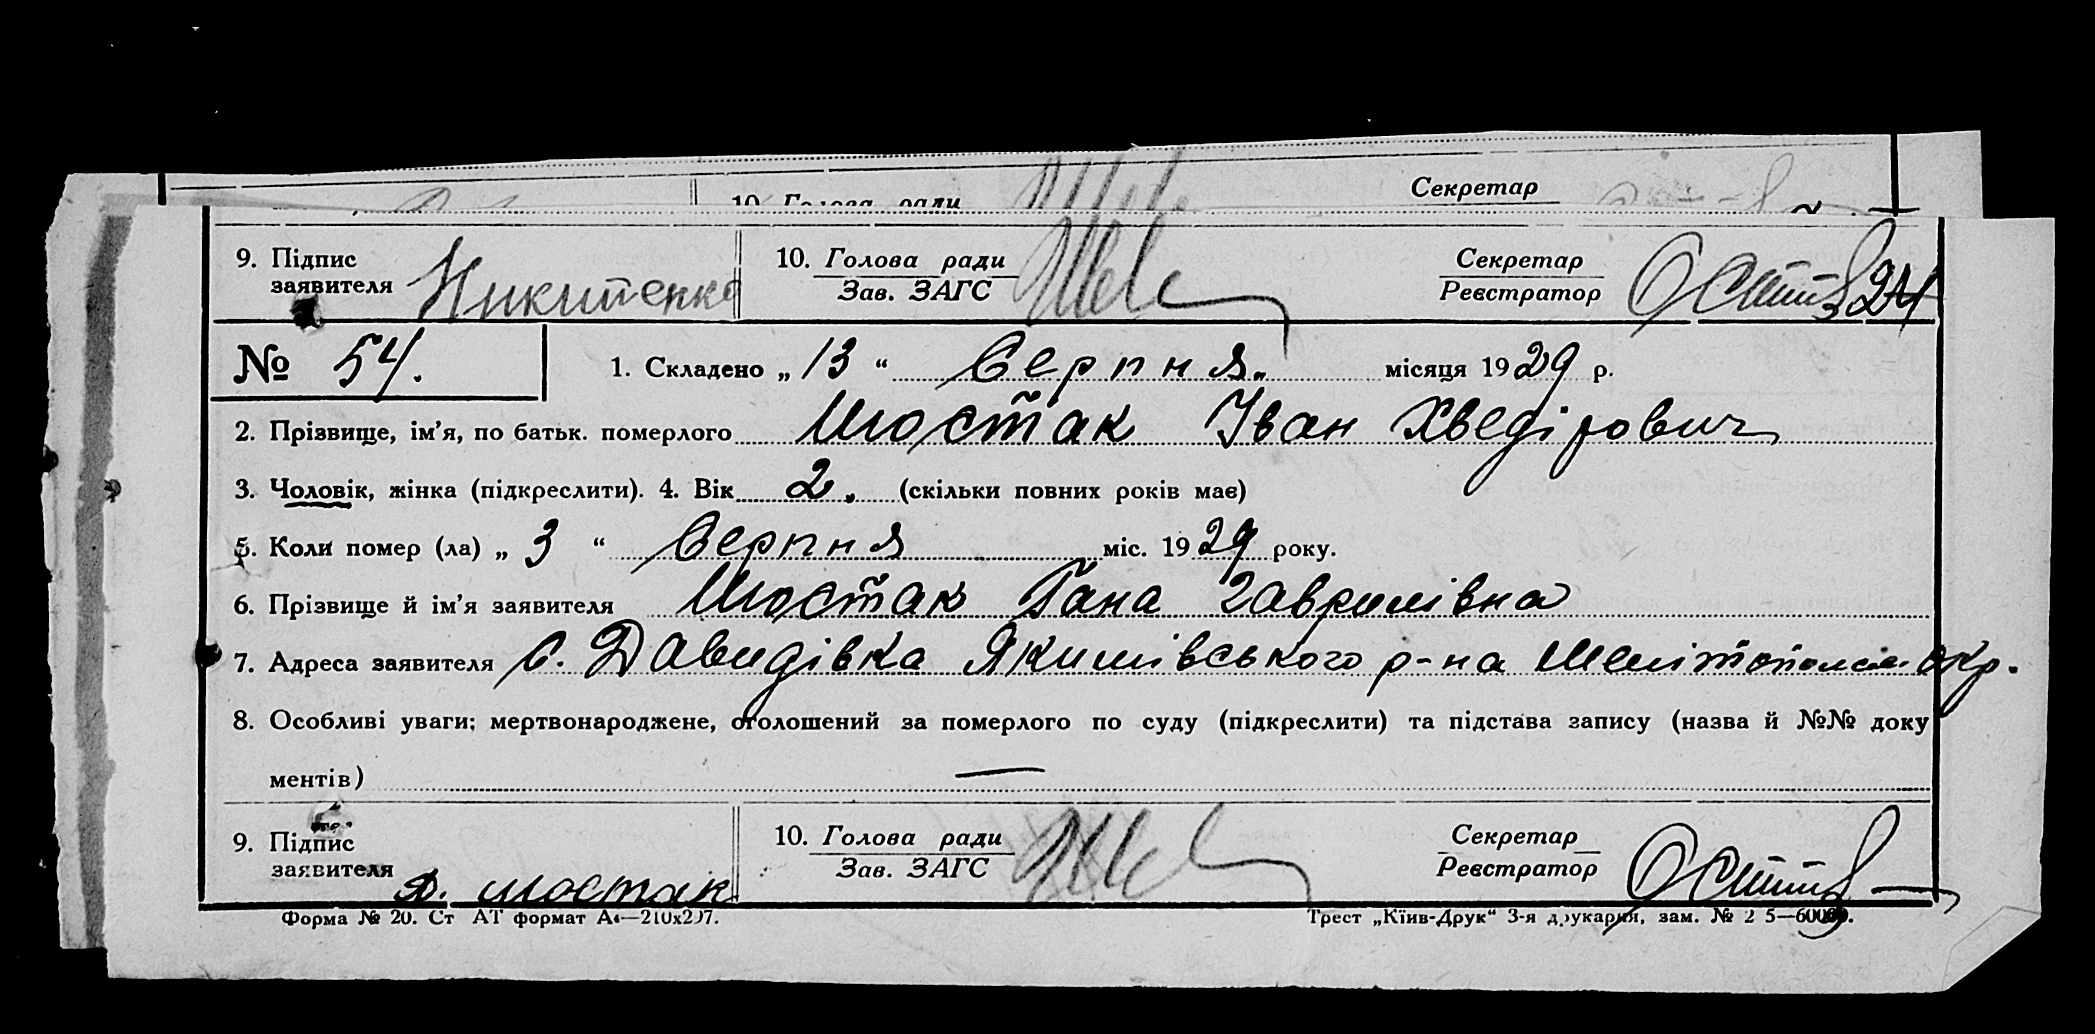 Секретар
10. Голова ради
9. Підпис заявителя Никитенко 10. Голова ради Зав. ЗАГС Шев Секретар Реєстратор
№ 54. 1. Складено „ 13 “ Серпня. місяця 1929 р.
2. Прізвище, ім’я, по батьк. померлого Шостак Іван Хведірович
3. Чоловік, жінка (підкреслити). 4. Вік 2. (скільки повних років має)
5. Коли помер (ла) „ 3 “ Серпня міс. 1929 року.
6. Прізвище й ім’я заявителя Шостак Гана Гаврилівна
7. Адреса заявителя с. Давидівка Якимівського р-на Мелітопольськ. окр.
8. Особливі уваги; мертвонароджене, оголошений за померлого по суду (підкреслити) та підстава запису (назва й №№ доку
ментів) —
9. Підпис заявителя Шостак 10. Голова ради Зав. ЗАГС Шев Секретар Реєстратор
Форма № 20. Ст АТ формат А4—210х297. Трест „Київ-Друк“ 3-я друкарня, зам. №